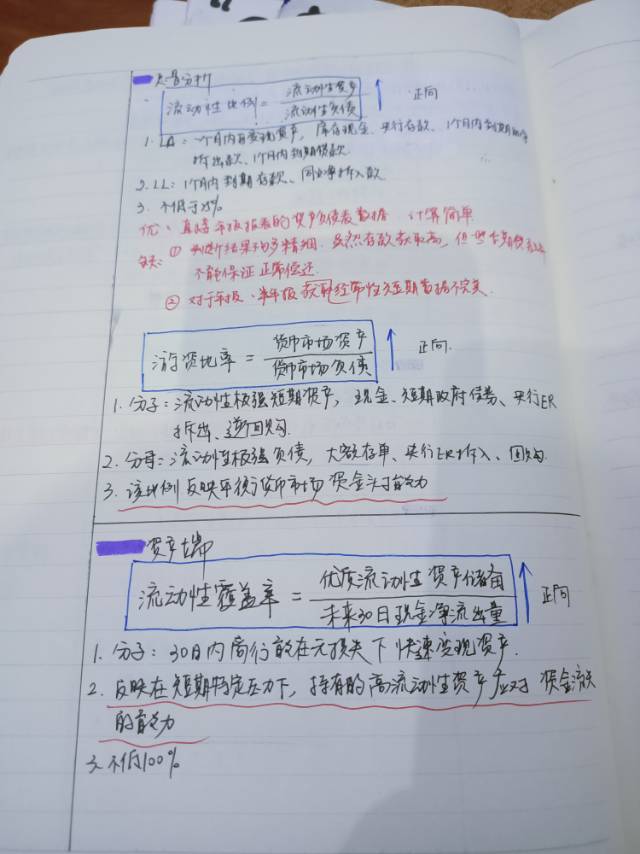 总量分析
流动性比例 = 流动性资产 / 流动性负债 ↑ 正向
1. LA：一个月内可变现资产，库存现金、央行存款、1个月内到期的净
拆出款、1个月内到期贷款
2. LL：1个月内到期存款、同业净拆入款
3. 不低于25%
优：直接年报报表的资产负债表数据，计算简单
缺：① 分析结果不够精细，虽然存款
不能保证正常偿还
② 对于年报、半年报获取经常性短期数据不完美
游资比率 = 货币市场资产 / 货币市场负债 ↑ 正向.
1. 分子：流动性极强短期资产，现金、短期政府债券、央行ER
拆出、逆回购.
2. 分母：流动性极强负债，大额存单、央行ER拆入、回购.
3. 该比例反映平衡货币市场资金头寸能力
资产端
流动性覆盖率 = 优质流动性资产储备 / 未来30日现金净流出量 ↑ 正向
1. 分子：30日内商行能在无损失下快速变现资产.
2. 反映在短期特定压力下，持有的高流动性资产应对资金流失
的能力
3. 不低100%